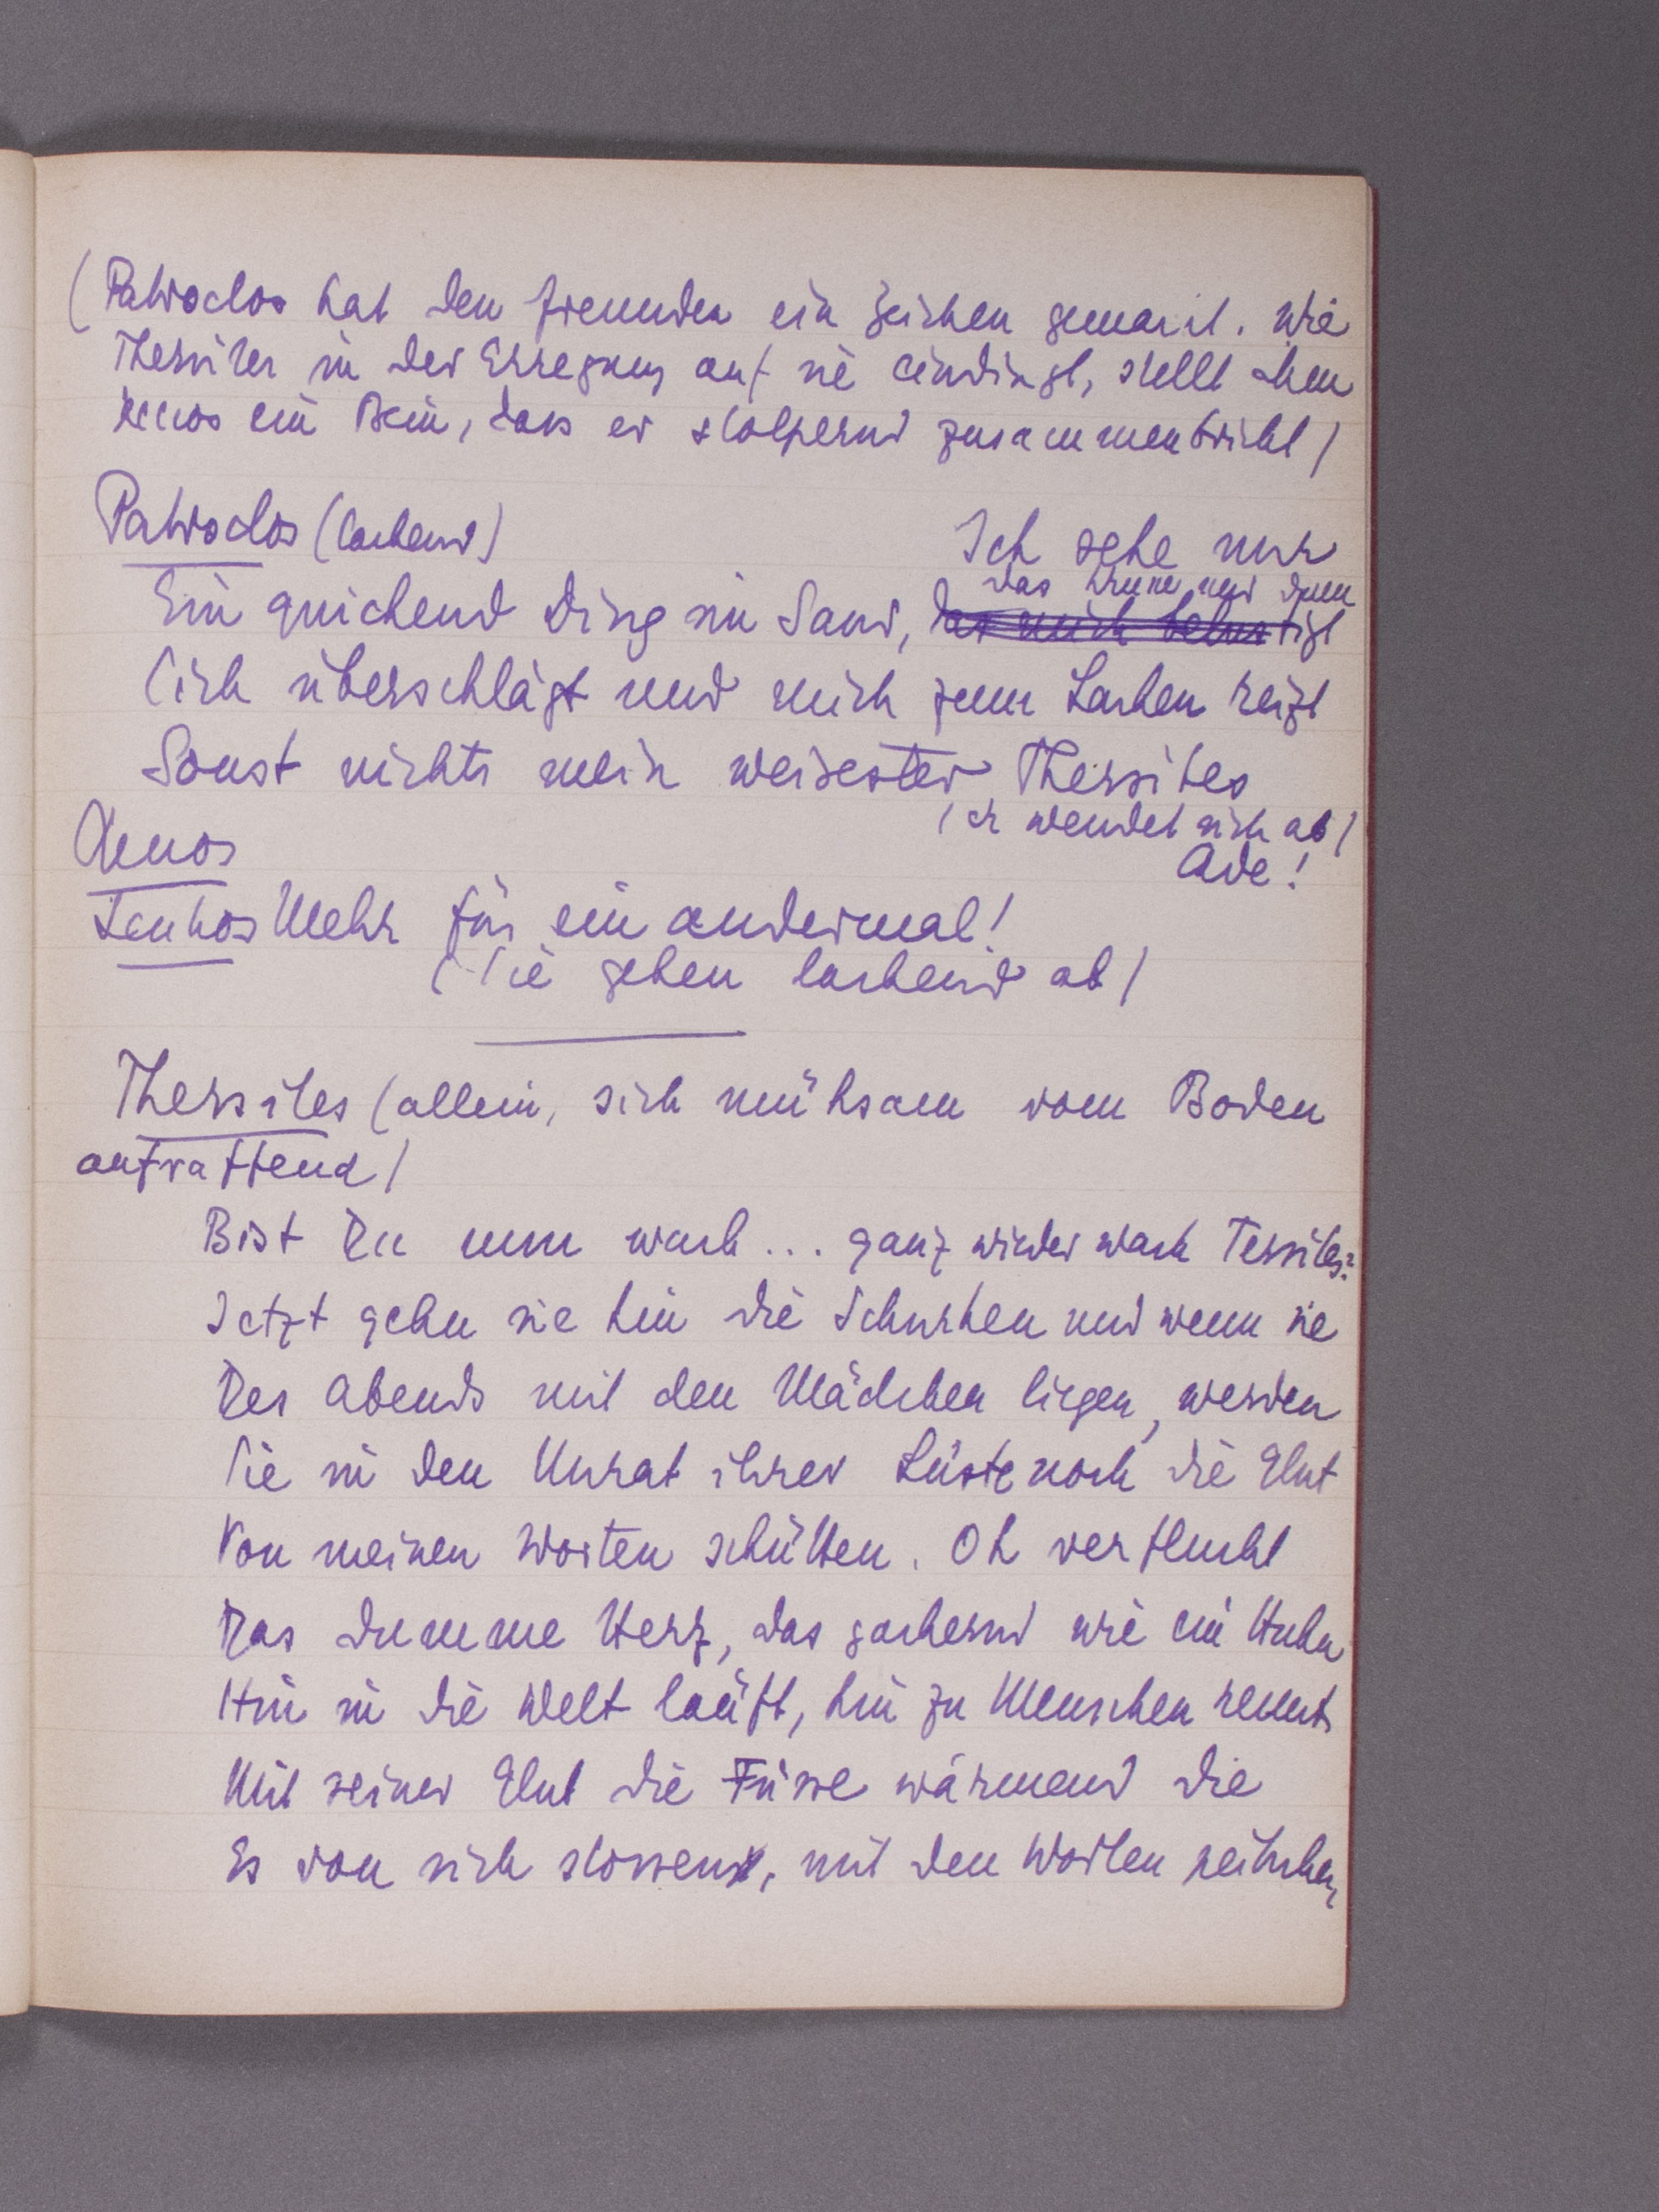 (Patroclos hat den Freunden ein Zeichen gemacht. Wie
Thersites in der Erregung auf sie eindringt, stellt ihm
Xenos ein Bein, dass er stolpernd zusammenbricht)
Patroclos (lachend) Ich sehe nur
das krumm und dumm
Ein quickend Ding im Sand, das mich belustigt
Sich überschlägt und mich zum Lachen reizt
Sonst nichts mein weisester Thersites
(er wendet sich ab)
Xenos
Ade!
Teukos Mehr für ein andermal!
(Sie gehen lachend ab)
Thersites (allein, sich mühsam vom Boden
aufraffend)
Bist Du nun wach ... ganz wieder wach Tersites?
Jetzt gehn sie hin die Schurken und wenn sie
Des Abends mit den Mädchen liegen, werden
Sie in den Unrat ihrer Lüste noch die Glut
Von meinen Worten schütten. Oh verflucht
Das dumme Herz, das gackernd wie ein Huhn
Hin in die Welt läuft, hin zu Menschen rennt
Mit seiner Glut die Füsse wärmend die
Es von sich stossen, mit den Worten